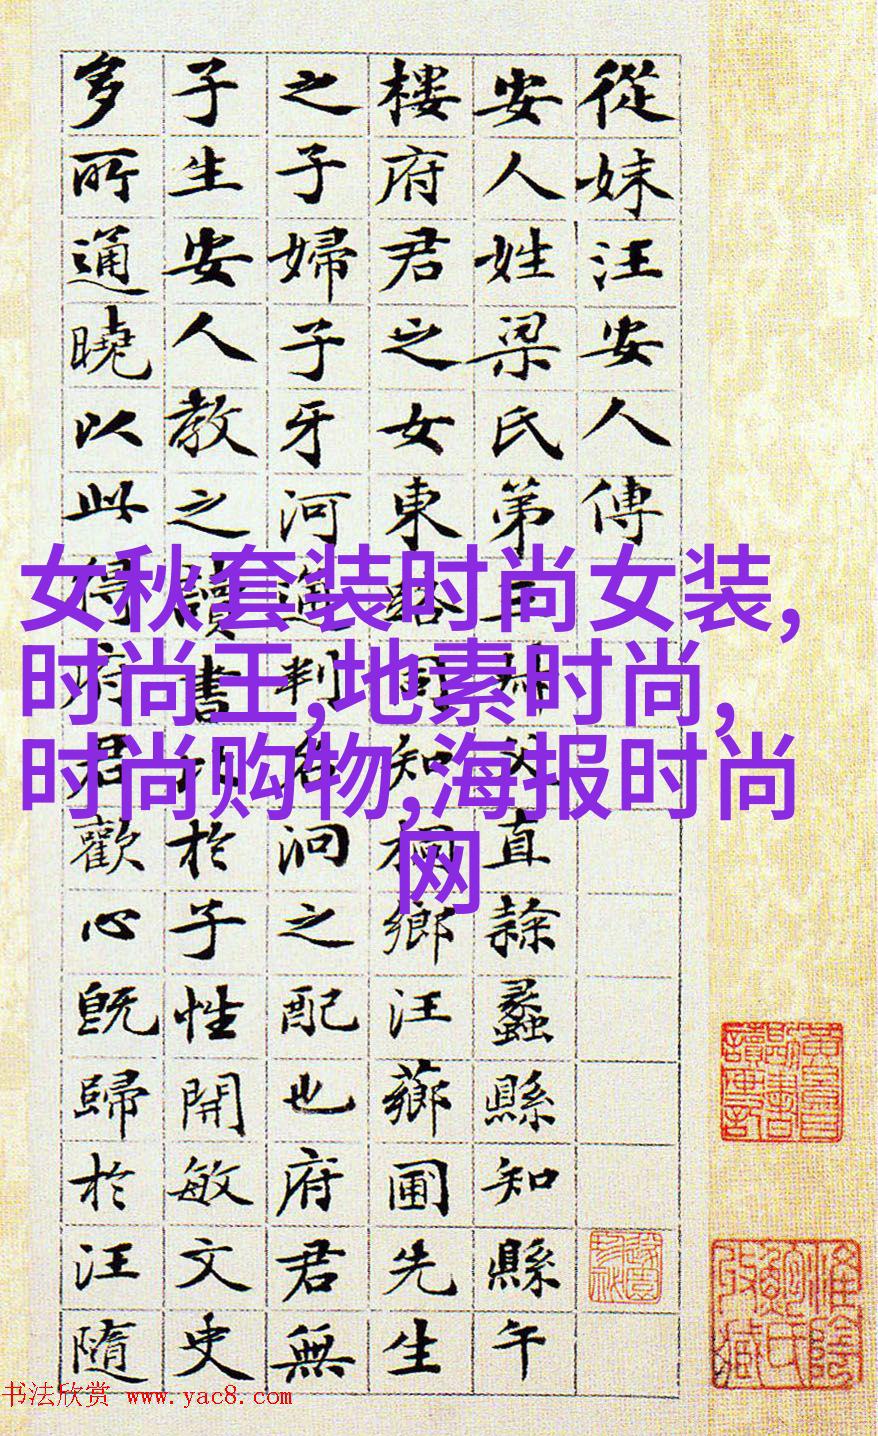 從妹汪安人傳
安人姓梁氏弟父直隸蠡縣知縣午
樓府君之女東路同知桐鄉汪薌圃先生
之子婦子牙河通判名泂之配也府君無
子生安人教之讀書於子性開敏文史
多所通曉以此得府君歡心既歸於汪隨
女秋套装时尚女装,
时尚王,地素时尚,
时尚购物,海报时尚
网
书法欣赏 www.yac8.com